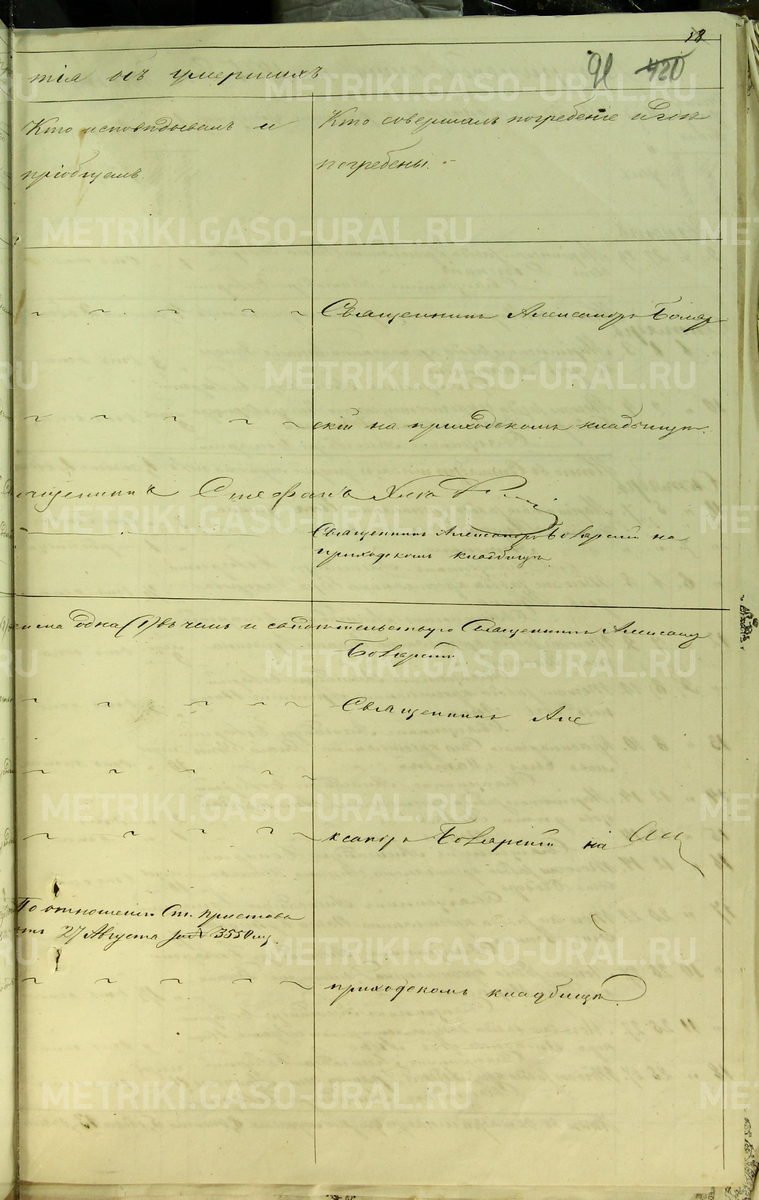 18
91 420
тія объ умершихъ
Кто исповѣдывалъ и
пріобщалъ.
Кто совершалъ погребеніе и гдѣ
погребены.
Священникъ Александръ Боляр
скій на приходскомъ кладбищѣ.
Священникъ Стефанъ
Священникъ Александръ Болярскій на
приходскомъ кладбищѣ.
одна (1) въ чемъ и свидѣтельствую Священникъ Александ
Болярскій
Священникъ Але
ксандръ Болярскій на
По отношенію Ст. пристава
отъ 27 Августа за № 3550
приходскомъ кладбищѣ.
METRIKI.GASO-URAL.RU